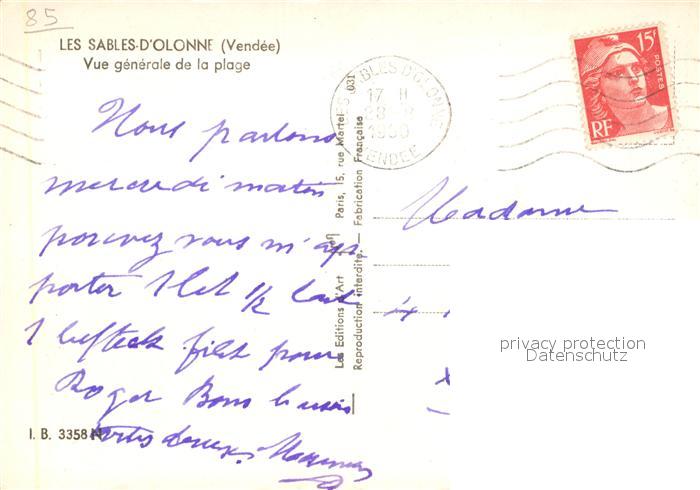 85
LES SABLES-D'OLONNE (Vendée)
Vue générale de la plage
Nous partons
mercredi matin
pouvez vous m'ap
porter 1 let 1/2 lait
1 befteck filet pour
Roger Bons baisers
I. B. 3358
Les Editions d'Art Paris, 15, rue Martel
Reproduction interdite. — Fabrication Française
LES SABLES D'OLONNE
17 H
1950
VENDÉE
15F
POSTES
RF
Madame
privacy protection
Datenschutz